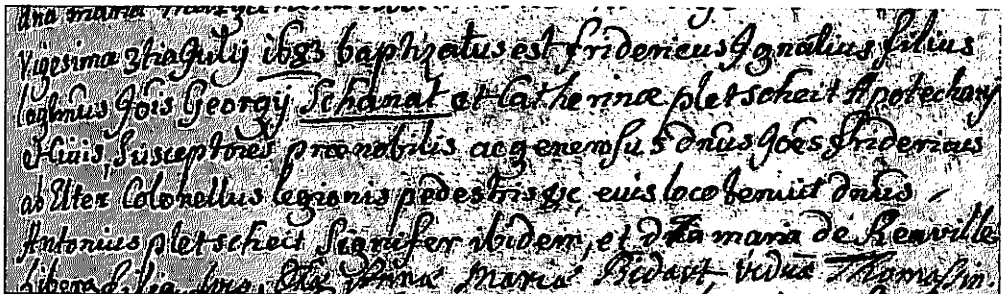 Vigesima 3tia Julij 1683 baptizatus est fridericus Ignatius filius
legtmus Jois Georgij Schanat et Catherinæ pletscheit Apotecharij
Civis, Susceptores prænobilis ac generosus dnus Joes fridericus
ab Elter Colonellus legionis pedestris &c, euis loco tenuit dnus
Antonius pletscheit Signifer ibidem, et dna maria de Renville
Anna Maria Bidart, vidua